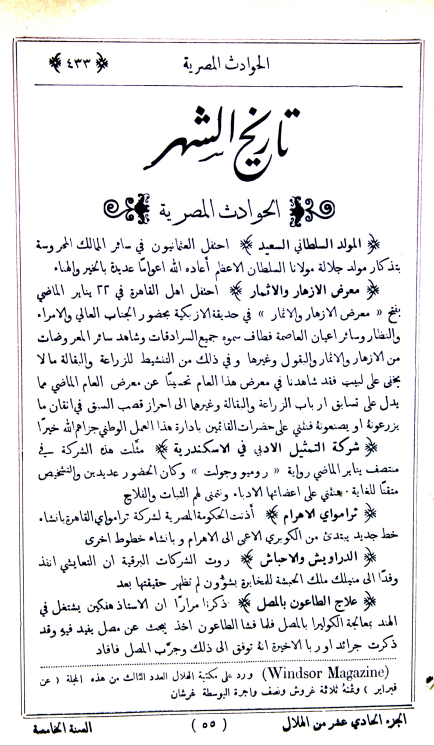 الحوادث المصرية
﴿ ٤٣٣ ﴾
تاريخ الشهر
الحوادث المصرية
﴿ المولد السلطاني السعيد ﴾ احتفل العثمانيون في سائر الممالك المحروسة
بتذكار مولد جلالة مولانا السلطان الاعظم أعاده الله اعوامًا عديدة بالخير والهناء
﴿ معرض الازهار والاثمار ﴾ احتفل اهل القاهرة في ٢٢ يناير الماضي
بفتح « معرض الازهار والاثمار » في حديقة الازبكية بحضور الجناب العالي والامراء
والنظار وسائر اعيان العاصمة فطاف سموه جميع السرادقات وشاهد سائر المعروضات
من الازهار والاثمار والبقول وغيرها وفي ذلك من التنشيط للزراعة والبقالة ما لا
يخفى على لبيب فقد شاهدنا في معرض هذا العام تحسينًا عن معرض العام الماضي مما
يدل على تسابق ارباب الزراعة والبقالة وغيرها الى احراز قصب السبق في اتقان ما
يزرعونه او يصنعونه فنثني على حضرات القائمين بادارة هذا العمل الوطني جزاهم الله خيرًا
﴿ شركة التمثيل الادبي في الاسكندرية ﴾ مثلت هذه الشركة في
منتصف يناير الماضي رواية « روميو وجولت » وكان الحضور عديدين والتشخيص
متقنًا للغاية . فنثني على اعضائها الادباء ونتمنى لهم الثبات والفلاح
﴿ تراموأي الاهرام ﴾ أذنت الحكومة المصرية لشركة تراموأي القاهرة بانشاء
خط جديد يبتدئ من الكوبري الاعمى الى الاهرام وبانشاء خطوط اخرى
﴿ الدراويش والاحباش ﴾ روت الشركات البرقية ان التعايشي انفذ
وفدًا الى منيلك ملك الحبشة للمخابرة بشؤون لم تظهر حقيقتها بعد
﴿ علاج الطاعون بالمصل ﴾ ذكرنا مرارًا ان الاستاذ هفكين يشتغل في
الهند بمعالجة الكوليرا بالمصل فلما فشا الطاعون اخذ يبحث عن مصل يفيد فيه وقد
ذكرت جرائد اوربا الاخيرة انه توفق الى ذلك وجرّب المصل فافاد
(Windsor Magazine) ورد على مكتبة الهلال العدد الثالث من هذه المجلة ( عن
فبراير ) وثمنه ثلاثة غروش ونصف واجرة البوسطة غرشان
الجزء الحادي عشر من الهلال
( ٥٥ )
السنة الخامسة